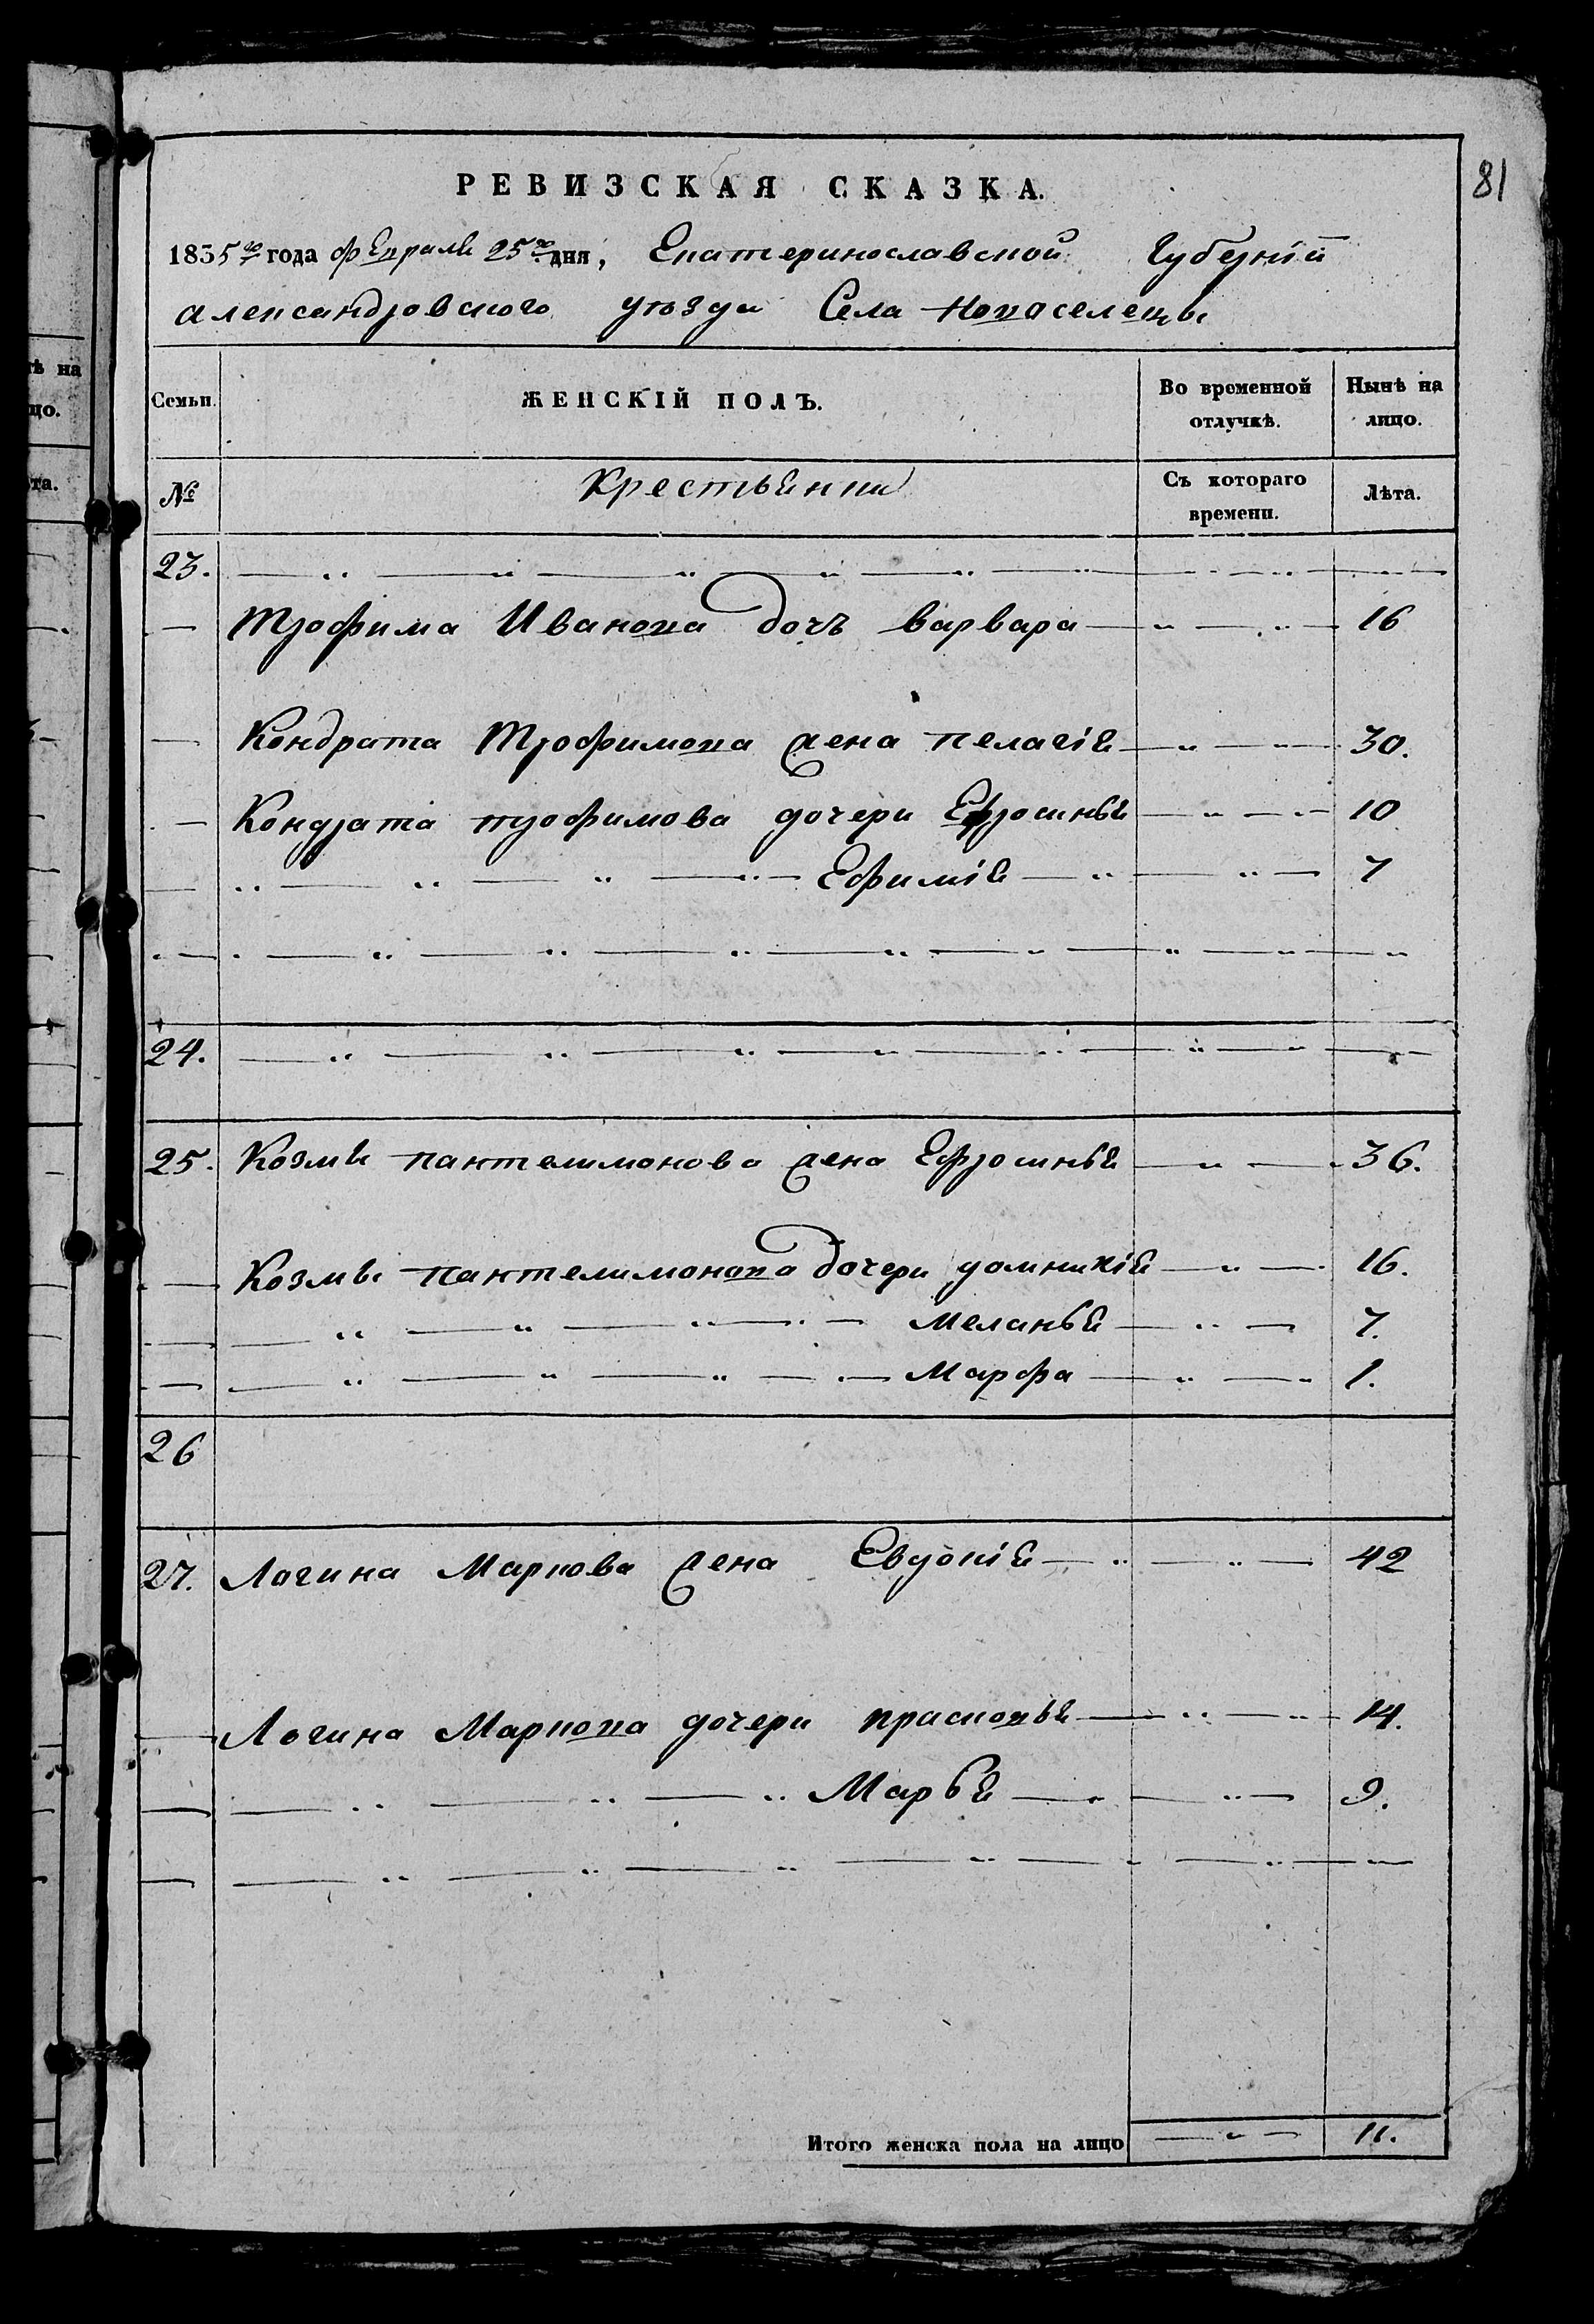 81
РЕВИЗСКАЯ СКАЗКА.
1835го года февраля 25го дня, Екатеринославской Губерніи
александровского уѣзда Села Новоселецы
ѣ на
цо.
та.
Семьи. ЖЕНСКІЙ ПОЛЪ. Во временной отлучкѣ. Нынѣ на лицо.
№ Крестьянки Съ котораго времени. Лѣта.
23.
Трофима Иванова дочь варвара 16
Кондрата Трофимова жена пелагія 30.
Кондрата трофимова дочери Ефросинья 10
Ефимія 7
24.
25. Козмы пантелимонова жена Ефросинья 36.
Козмы пантелимонова дочери домникія 16.
Меланья 7.
Марфа 1.
26
27. Логина Маркова жена Евдокія 42
Логина Маркова дочери прасковья 14.
Марья 9.
Итого женска пола на лицо 11.